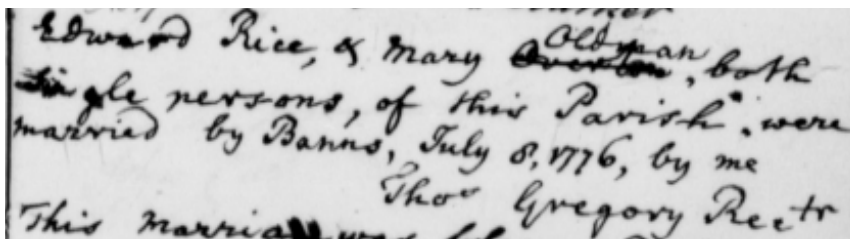 Edward Rice, & Mary Oldman, both
single persons, of this Parish, were
married by Banns, July 8, 1776, by me
Thos Gregory Rectr
This marria